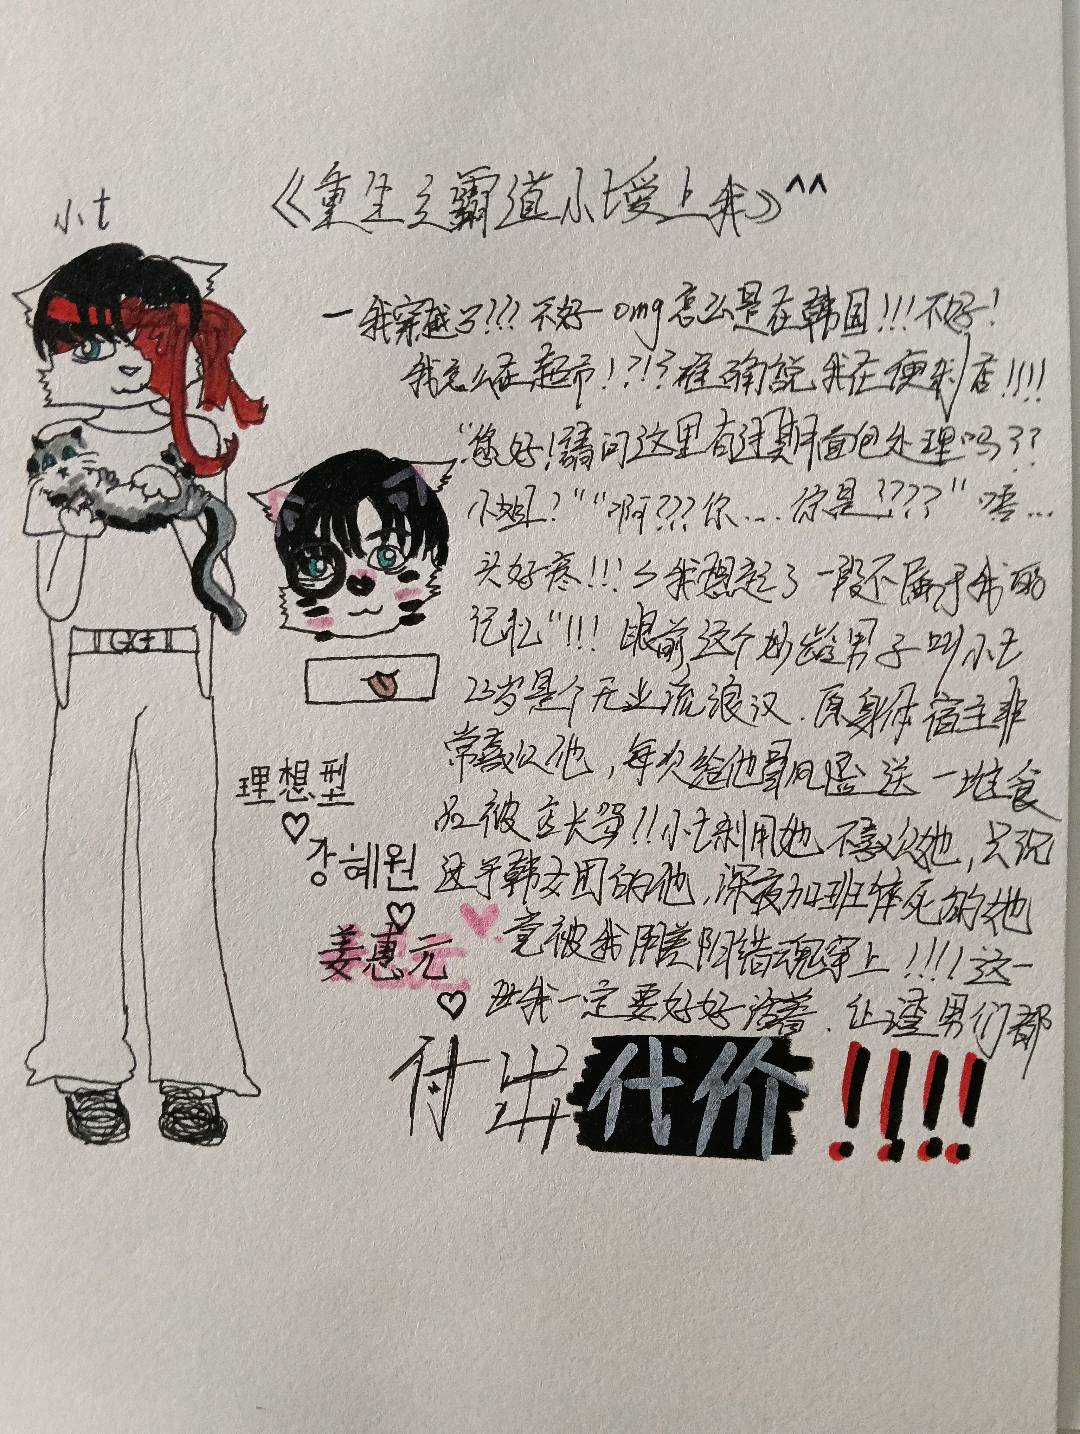 小t
《重生之霸道小t爱上我》^^
一我穿越了!??不好omg怎么是在韩国!!!不好!
我怎么在超市!?!?准确说我在便利店!!!!
“您好!請问这里有过期面包处理吗??
小姐?”“啊???你....你是????”唔...
头好疼!!!“我想起了一段不属于我的
记忆”!!!眼前这个妙龄男子叫小t
23岁是个无业流浪汉.原身体宿主非
常喜欢他,每次给他冒风险送一堆食
品被店长骂!!小t利用她不喜欢她,只沉
迷于韩女团的他.深夜加班猝死的她
竟被我阴差阳错魂穿上!!!!这一
世我一定要好好活着.让渣男们都
付出代价!!!!
理想型
강혜원
姜惠元
GG